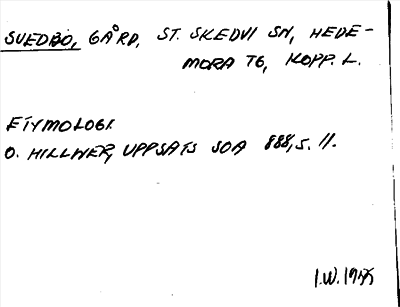 SVEDBO, GÅRD, ST. SKEDVI SN, HEDE-
MORA TG, KOPP. L.
ETYMOLOGI.
O. HILLNER, UPPSATS SOA 888, S. 11.
I.W.